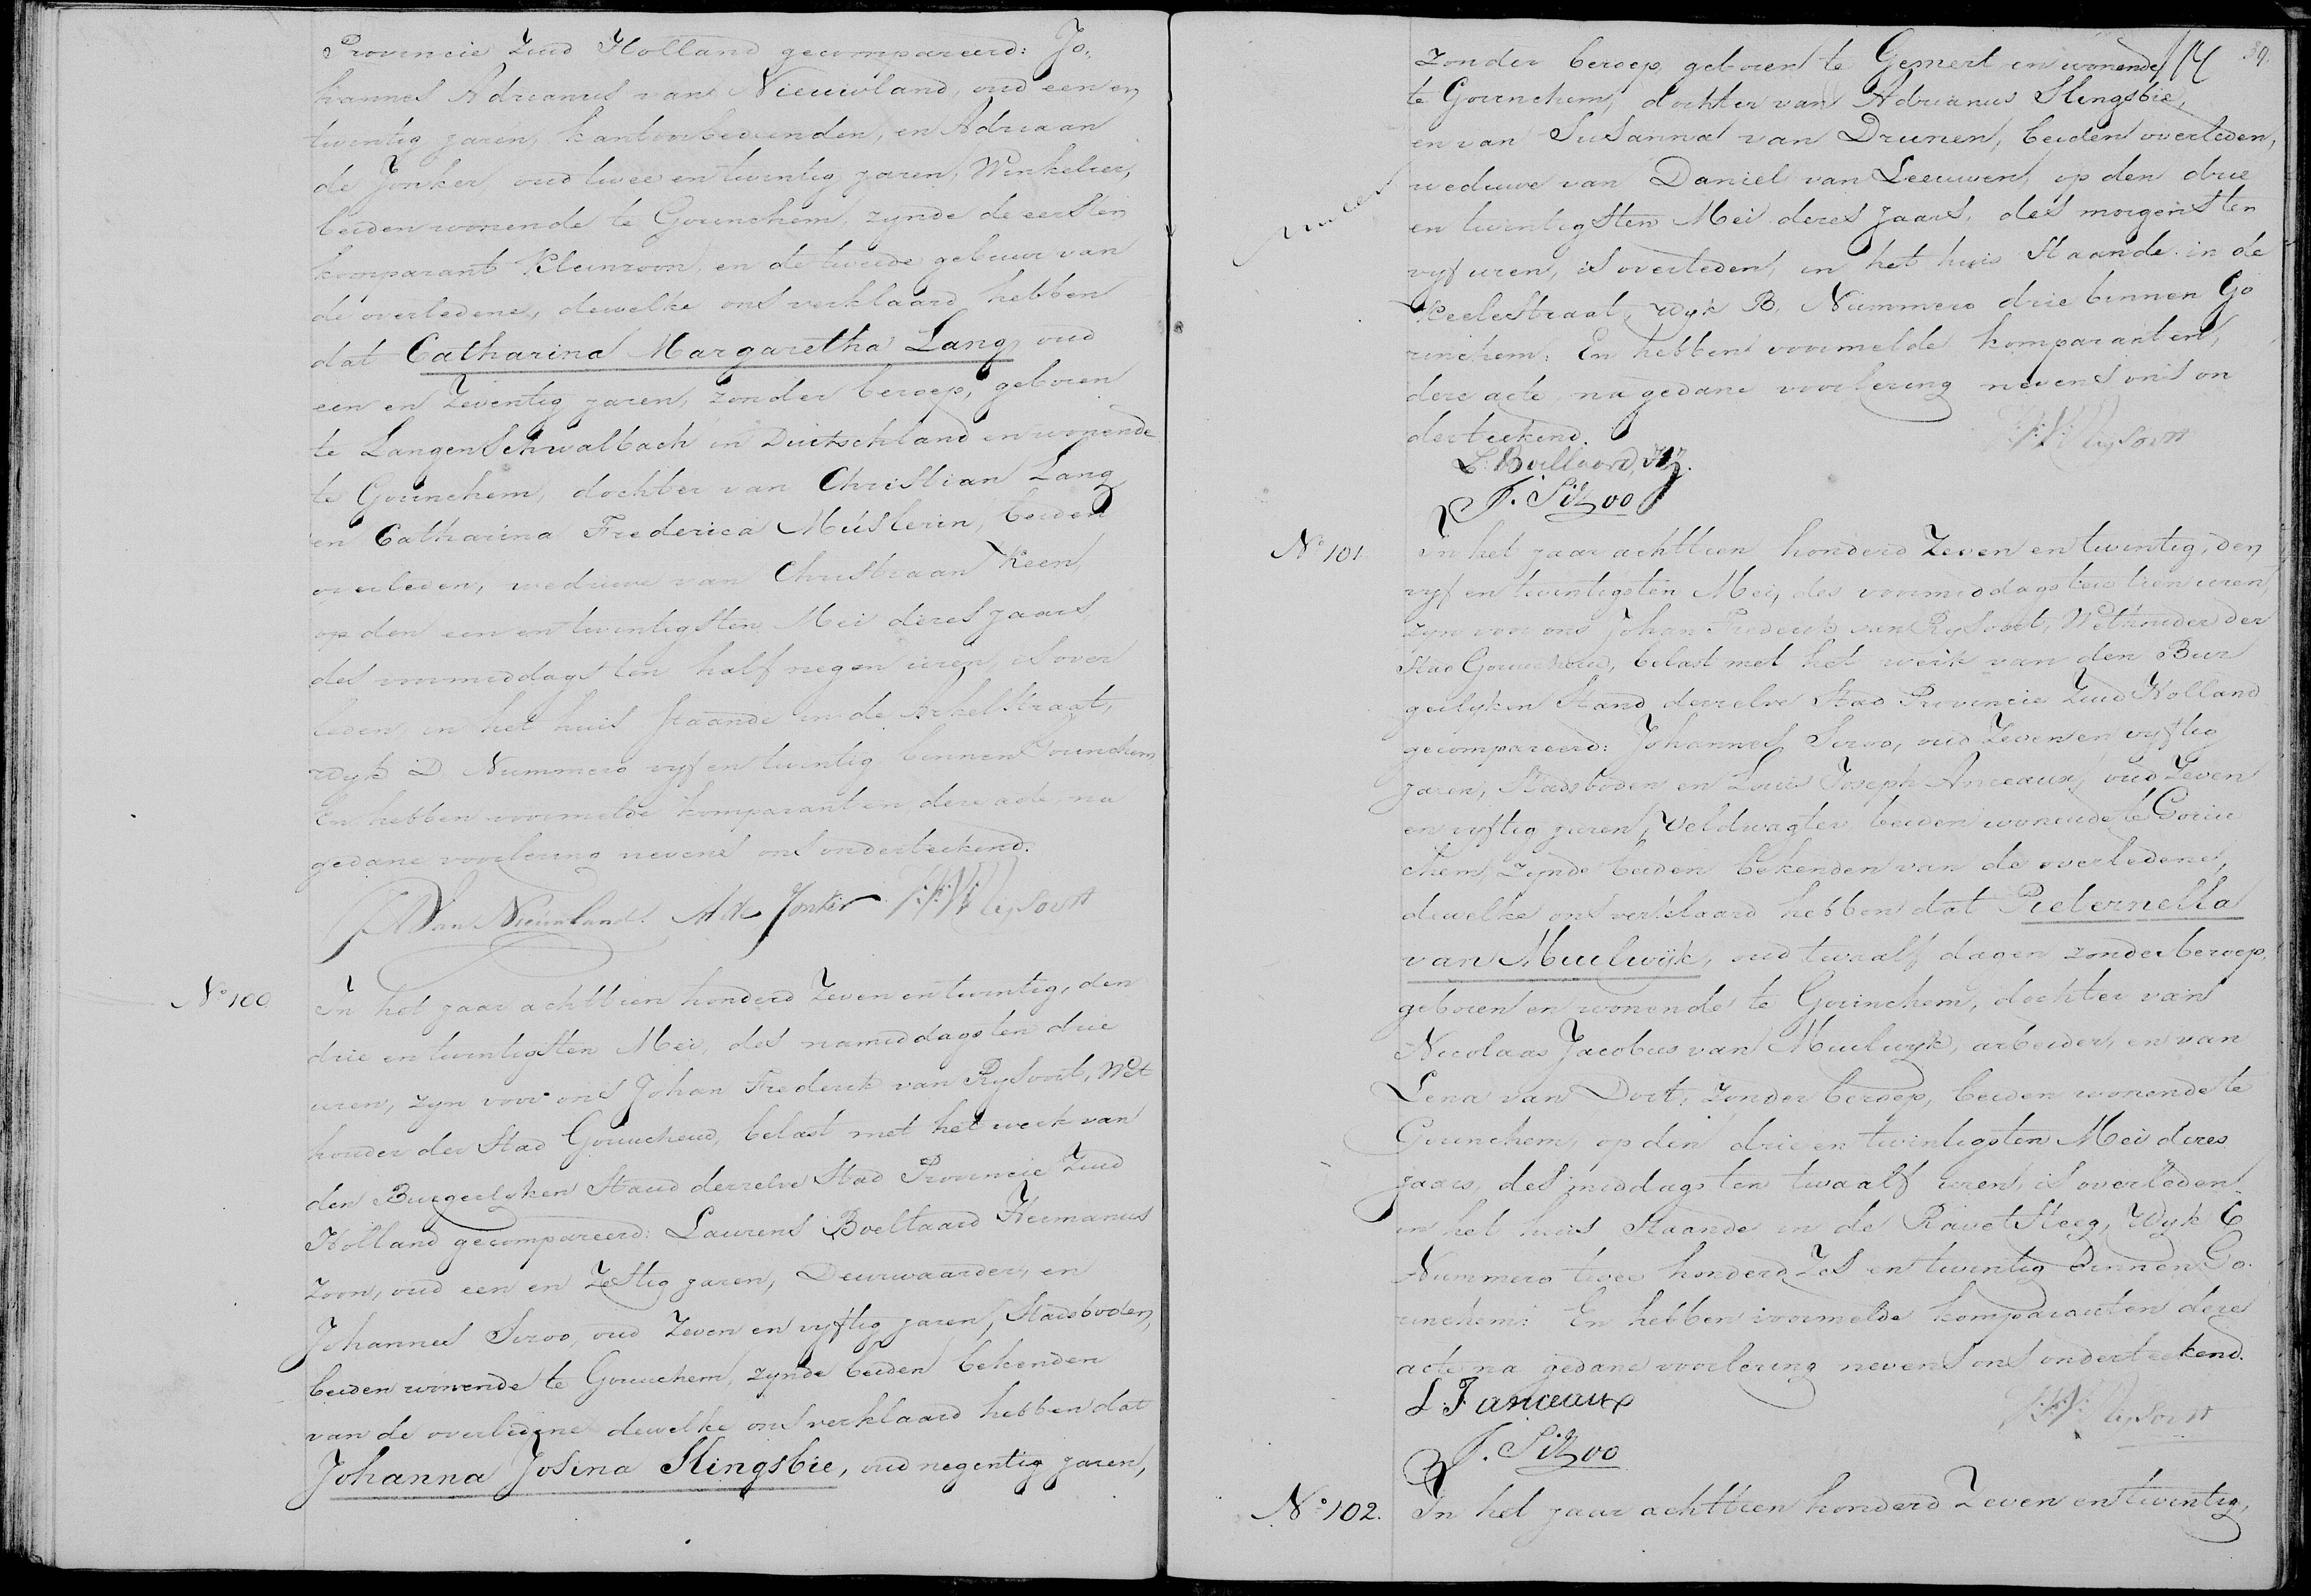 Provincie Zuid Holland gecompareerd: Jo,
hannes Adrianus van Nieuwland, oud een en
twintig jaren, kantoorbedienden, en Adriaan
de Jonker oud twee en twintig jaren, Winkelier,
beiden wonende te Gorinchem, zynde de eersten
komparant Kleinzoon, en de tweede gebuur van
de overledene, dewelke ons verklaard hebben
dat Catharina Margaretha Lang, oud
een en Zeventig jaren, zonder beroep, geboren
te Langenschwalbach in Duitschland en wonende
te Gorinchem, dochter van Christian Lang
en Catharina Frederica Müslerin, beiden
overleden, weduwe van Christiaan Keen
op den een en twintigsten Mei dezes jaars,
des voormiddags ten half negen uren, is over
leden, in het huis staande in de Arkelstraat,
Wyk D. Nummero vyf en twintig binnen Gorinchem
En hebben voormelde komparanten deze acte, na
gedane voorlezing nevens ons onderteekend.
JA Van Nieuwland. A de Jonker JF V Rysoort
No 100 In het jaar achttien honderd Zeven en twintig, den
drie en twintigsten Mei, des namiddags ten drie
uren, zyn voor ons Johan Frederik van Rysoort, Wet
houder der Stad Gorinchem, belast met het werk van
den Burgerlyken Stand derzelve Stad Provincie Zuid
Holland gecompareerd: Laurens Boellaard Hermanus
Zoon, oud een en Zestig jaren, Deurwaarder, en
Johannes Sizoo, oud Zeven en vyftig jaren, Stadsboden,
beiden wonende te Gorinchem, zynde beiden bekenden
van de overledene dewelke ons verklaard hebben dat
Johanna Josina Slingsbie, oud negentig jaren,
89.
zonder beroep, geboren te Gemert en wonende
te Gorinchem, dochter van Adrianus Slingsbie,
en van Susanna van Drunen, beiden overleden,
weduwe van Daniel van Leeuwen, op den drie
en twintigsten Mei dezes jaars, des morgens ten
vyf uren, is overleden, in het huis Staande in de
Keelestraat, Wyk B. Nummero drie binnen Go
rinchem: En hebben voormelde komparanten,
deze acte, na gedane voorlezing nevens ons on
derteekend.
JF V Rysoort
L. Boellaard, Hz.
J. Sizoo
No 101. In het jaar achttien honderd Zeven en twintig, den
vyf en twintigsten Mei, des voormiddags ten tien uren,
zyn voor ons Johan Frederik van Rysoort, Wethouder der
Stad Gorinchem, belast met het werk van den Bur
gerlyken Stand derzelve Stad Provincie Zuid Holland
gecompareerd: Johannes Sizoo, oud Zeven en vyftig
jaren, Stadsboden en Louis Joseph Anceaux, oud Zeven
en vyftig jaren, Veldwagter, beiden wonende te Gorin
chem, zynde beiden bekenden van de overledene,
dewelke ons verklaard hebben dat Pieternella
van Muulwijk, oud twaalf dagen zonder beroep,
geboren en wonende te Gorinchem, dochter van
Nicolaas Jacobus van Muulwyk, arbeider, en van
Lena van Dort, Zonder beroep, beiden wonende te
Gorinchem, op den drie en twintigsten Mei dezes
jaars, des middags ten twaalf uren, is overleden
in het huis Staande in de RavetSteeg, Wyk C
Nummero twee honderd Zes en twintig binnen Go.
rinchem: En hebben voormelde komparanten deze
acte na gedane voorlezing nevens ons onderteekend.
L. J anceaux
JF V Rysoort
J. Sizoo
No 102. In het jaar achttien honderd Zeven en twintig,